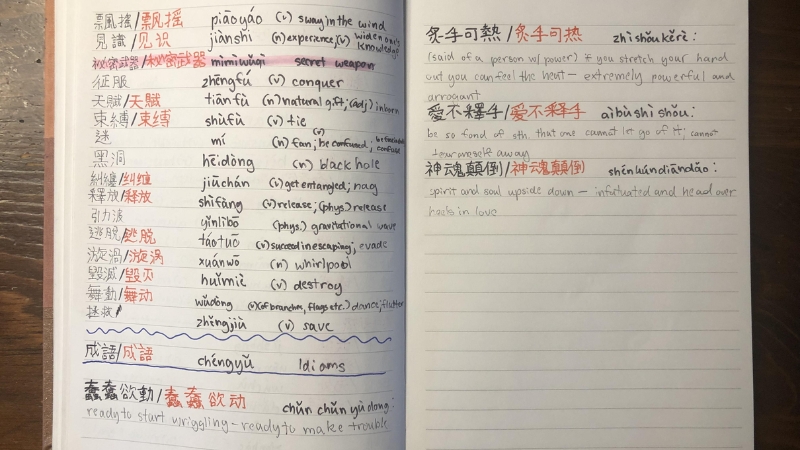 飄搖/飘摇 piāoyáo (v) sway in the wind
見識/见识 jiànshi (n) experience; (v) widen one's knowledge
秘密武器/秘密武器 mìmìwǔqì secret weapon
征服 zhēngfú (v) conquer
天賦/天赋 tiānfù (n) natural gift; (adj) inborn
束縛/束缚 shùfù (v) tie
迷 mí (n) fan; (v) be confused;
黑洞 hēidòng (n) black hole
糾纏/纠缠 jiūchán (v) get entangled; nag
釋放/释放 shìfàng (v) release; (phys.) release
引力波 yǐnlìbō (phys.) gravitational wave
逃脫/逃脱 táotuō (v) succeed in escaping; evade
漩渦/漩涡 xuánwō (n) whirlpool
毀滅/毁灭 huǐmiè (v) destroy
舞動/舞动 wǔdòng (v) (of branches, flags etc.) dance, flutter
拯救 zhěngjiù (v) save
成語/成語 chéngyǔ Idioms
蠢蠢欲動/蠢蠢欲动 chǔn chǔn yù dòng:
ready to start wriggling - ready to make trouble
炙手可熱/炙手可热 zhì shǒu kě rè:
(said of a person w/ power) if you stretch your hand
out you can feel the heat - extremely powerful and
arrogant
愛不釋手/爱不释手 àibùshì shǒu:
be so fond of sth. that one cannot let go of it; cannot
tear oneself away
神魂顛倒/神魂颠倒 shénhúndiāndǎo:
spirit and soul upside down - infatuated and head over
heels in love